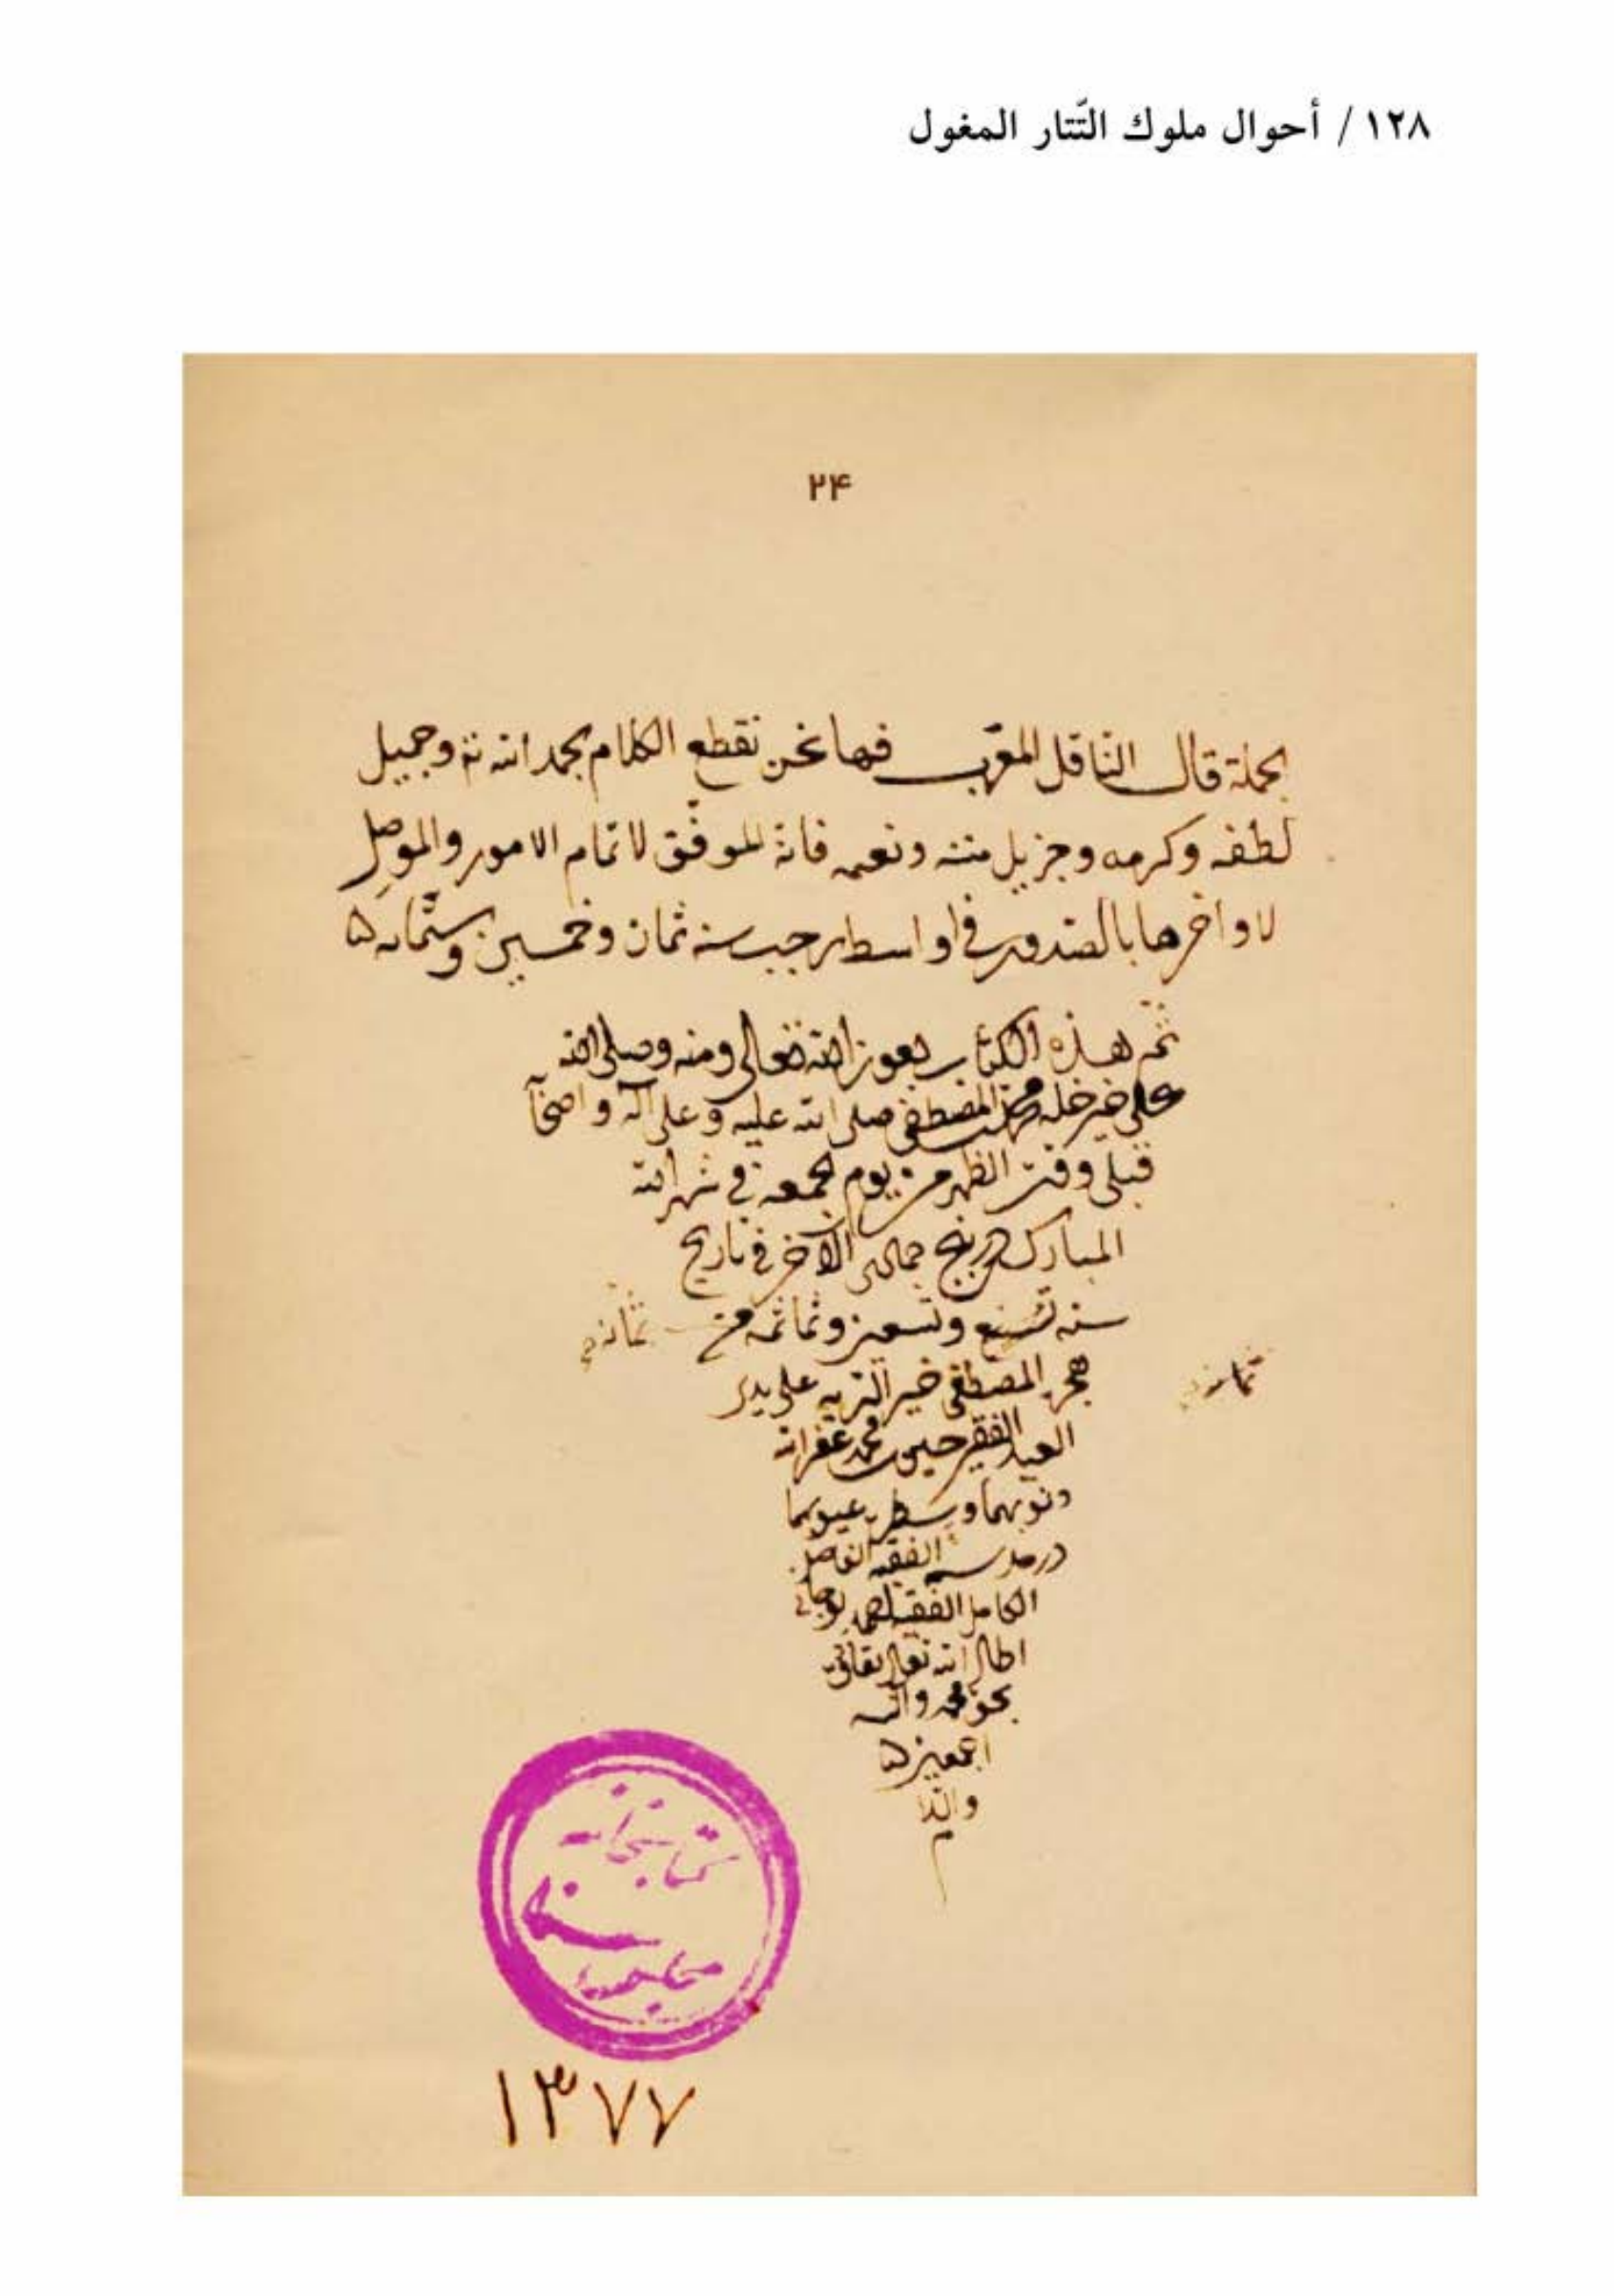 ١٢٨ / أحوال ملوك التّتار المغول
۲۴
بجملة قال الناقل المعرّب فها نحن نقطع الكلام بحمد الله تع وجميل
لطفه وكرمه وجزيل مننه ونعمه فانه الموفّق لاتمام الامور والموصل
لاواخرها بالصدور في اواسط رجب سنه ثمان وخمسين وستّمائه
تم هذه الكتاب بعون الله تعالى ومنه وصلى الله
على خير خلقه محمد المصطفى صلى الله عليه وعلى آله و اصحآ
قبلى وقت الظهر من يوم الجمعه في شهر الله
المبارك جمادى الآخر في تاريخ
سنه تسع وتسعين وثمانمه من
هجرة المصطفى خير البريه على يدى
العبد الفقير حسين محمد غفر الله
ذنوبهما وسطر عيوبهما
در مدرسه الفقيه الفاضل
الكامل الفقيه
اطال الله تعالى بقائه
بحق محمد وآله
اجمعين
والسلام
كتابخانه
مجلس
١٣٧٧